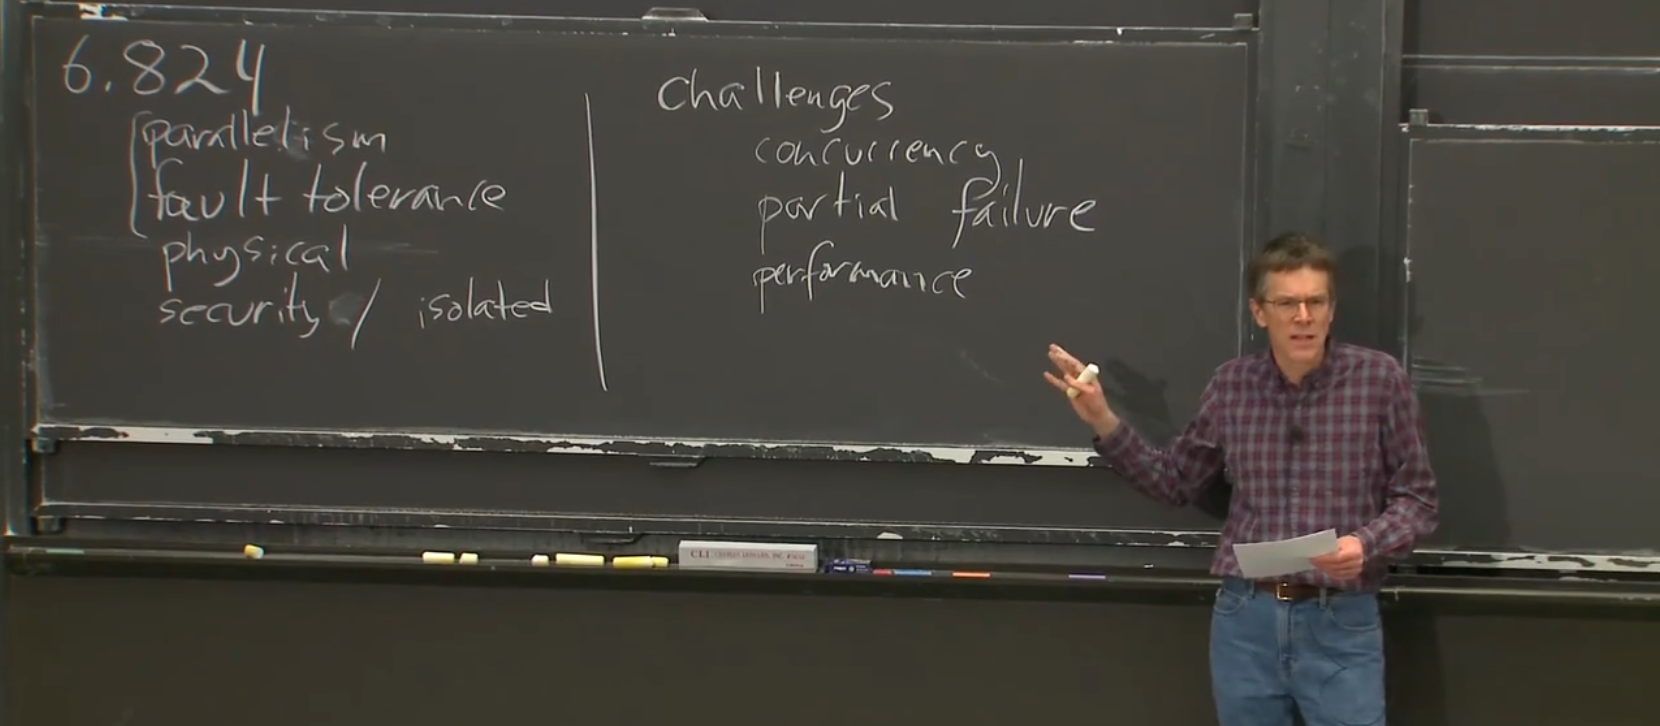 6.824
parallelism
fault tolerance
physical
security / isolated
challenges
concurrency
partial failure
performance
CLI